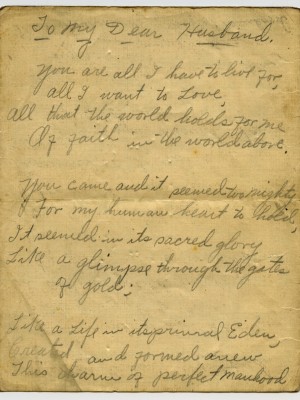 To My Dear Husband.
You are all I have to live for,
all I want to Love,
All that the world holds for me
Of faith in the world above.
You came and it seemed too mighty
For my human heart to hold,
It seemed in its sacred glory
Like a glimpse through the gates
of gold;
Like a life in its primal Eden,
Created and formed anew
This charm of perfect manhood